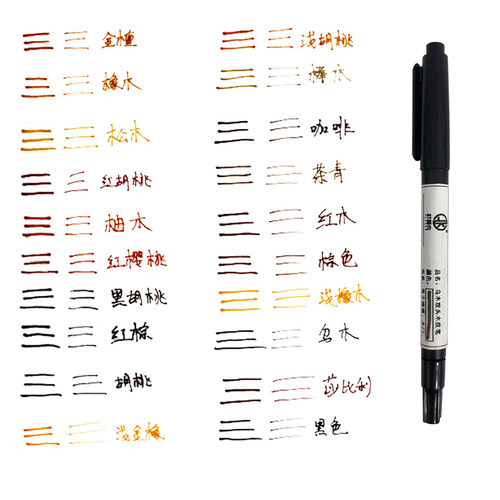 橡木
松木
红胡桃
柚木
红樱桃
黑胡桃
红棕
胡桃
浅金橡
浅胡桃
榉木
咖啡
茶青
红木
棕色
浅橡木
乌木
莎比利
黑色
品名：乌木双头木纹笔
颜色：